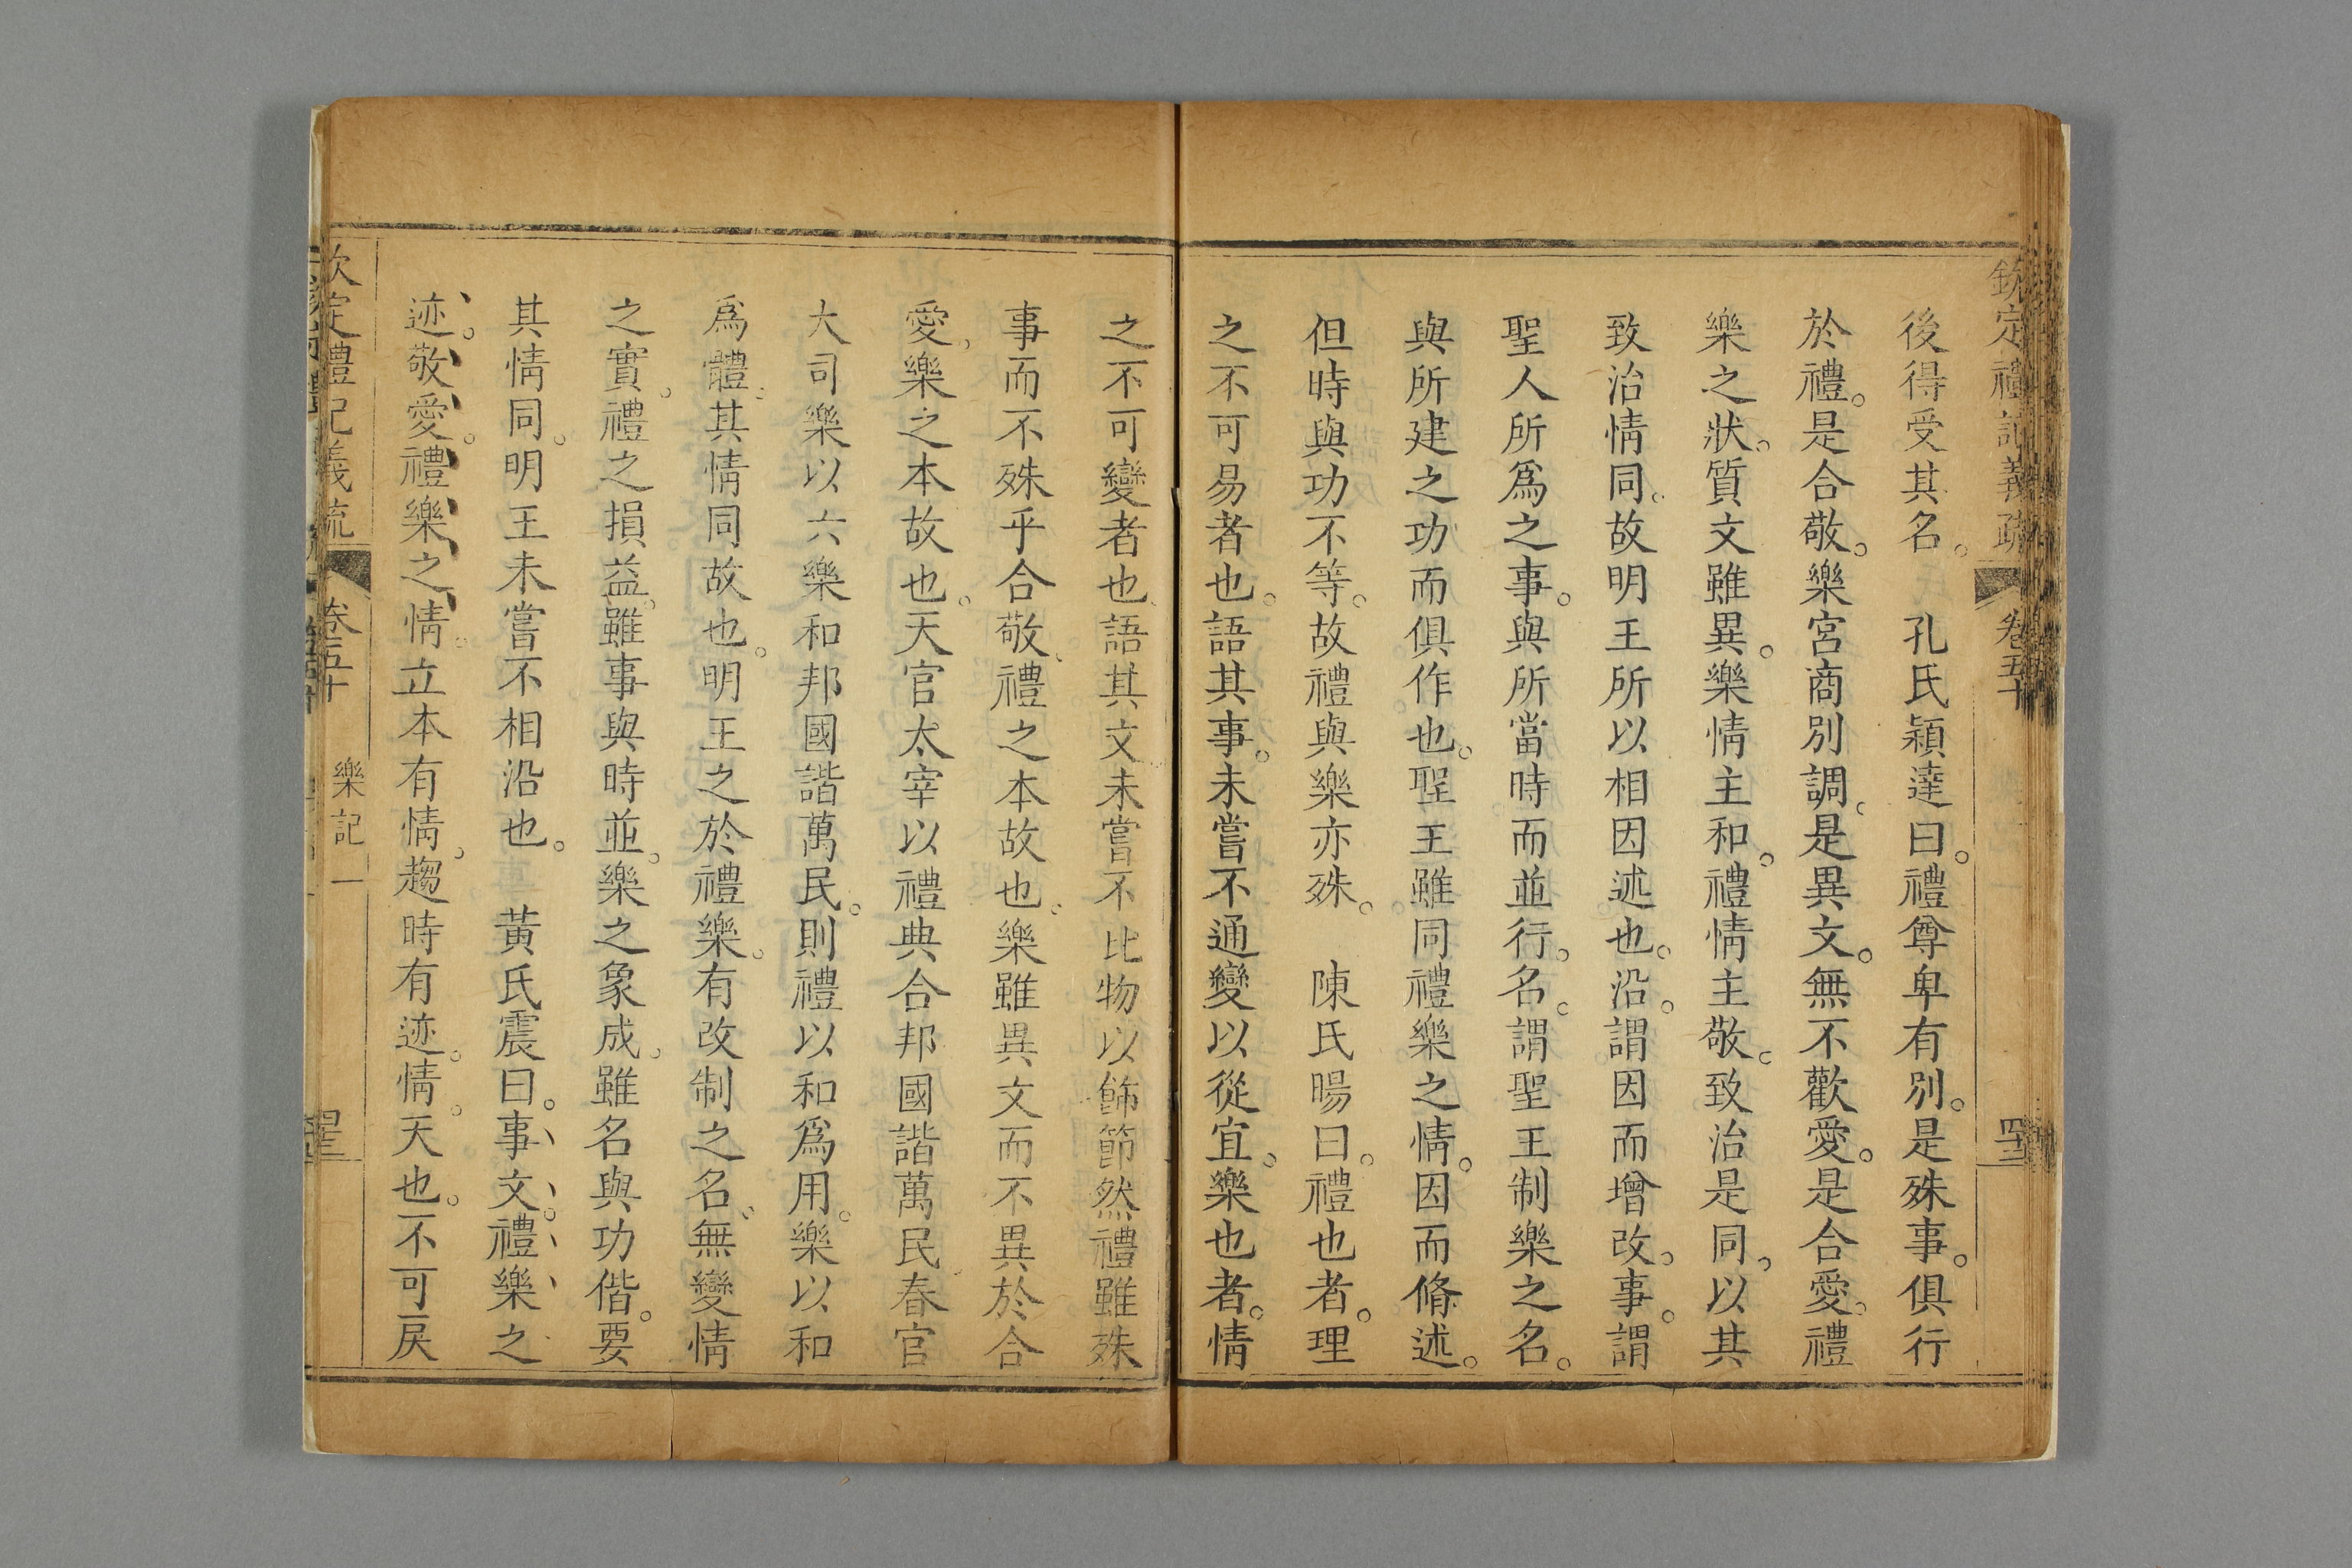 欽定禮記義疏 卷五十
後得受其名。 孔氏穎達曰。禮尊卑有別。是殊事。俱行
於禮。是合敬。樂宮商別調。是異文。無不歡愛。是合愛。禮
樂之狀。質文雖異。樂情主和。禮情主敬。致治是同。以其
致治情同。故明王所以相因述也。沿。謂因而增改。事。謂
聖人所爲之事。與所當時而並行。名。謂聖王制樂之名。
與所建之功而俱作也。聖王雖同禮樂之情。因而脩述。
但時與功不等。故禮與樂亦殊。 陳氏暘曰。禮也者。理
之不可易者也。語其事。未嘗不通變以從宜。樂也者。情
之不可變者也。語其文未嘗不比物以飾節然禮雖殊
事而不殊乎合敬。禮之本故也。樂雖異文而不異於合
愛。樂之本故也。天官太宰以禮典合邦國諧萬民春官
大司樂以六樂和邦國諧萬民。則禮以和爲用。樂以和
爲體。其情同故也。明王之於禮樂。有改制之名。無變情
之實。禮之損益。雖事與時並。樂之象成。雖名與功偕。要
其情同。明王未嘗不相沿也。 黃氏震曰。事文。禮樂之
迹。敬愛。禮樂之情。立本有情。趨時有迹。情。天也。不可戻
欽定禮記義疏 卷五十 樂記一